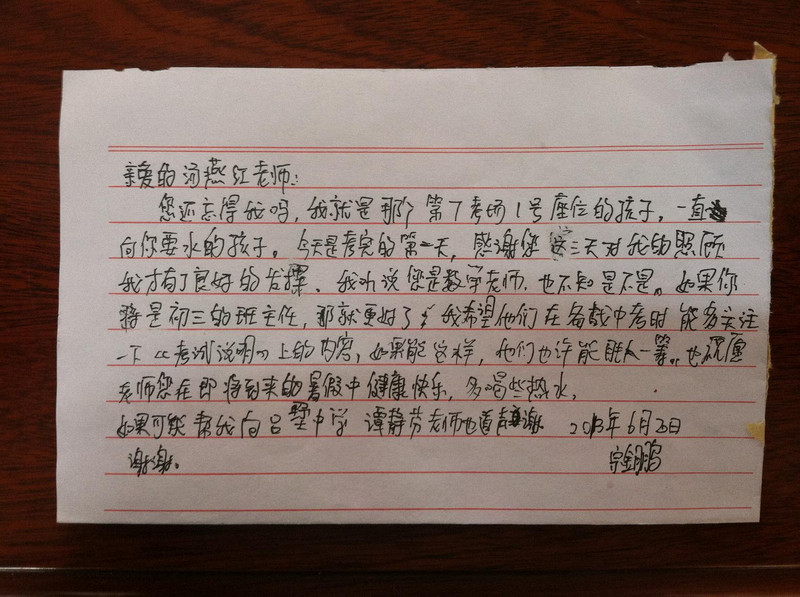 亲爱的汤燕红老师:
您还忘得我吗,我就是那个第7考场1号座位的孩子,一直
向你要水的孩子。今天是考完的第一天,感谢您这三天对我的照顾
我才有了良好的发挥、我听说您是数学老师,也不知是不是。如果你
将是初三的班主任,那就更好了,我希望他们在备战中考时能多关注
一下《考试说明》上的内容,如果能这样,他们也许能胜人一筹。也祝愿
老师您在即将到来的暑假中健康快乐,多喝些热水,
如果可能帮我向吕墅中学 谭静芬老师也道声谢 2013年6月20日
谢谢。 鹏